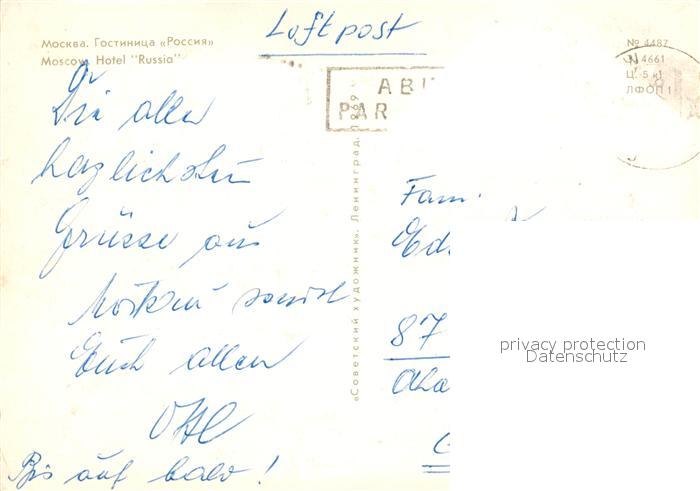 Москва. Гостиница «Россия»
Moscow. Hotel "Russia"
Luftpost
№ 4487
4661
Ц. 5 к
ЛФОП 1
PAR
Die aller
herzlichsten
Grüsse aus
Moskau sendet
Euch allen
Bis auf bald!
«Советский художник». Ленинград. 1969
Fam.
87
privacy protection
Datenschutz